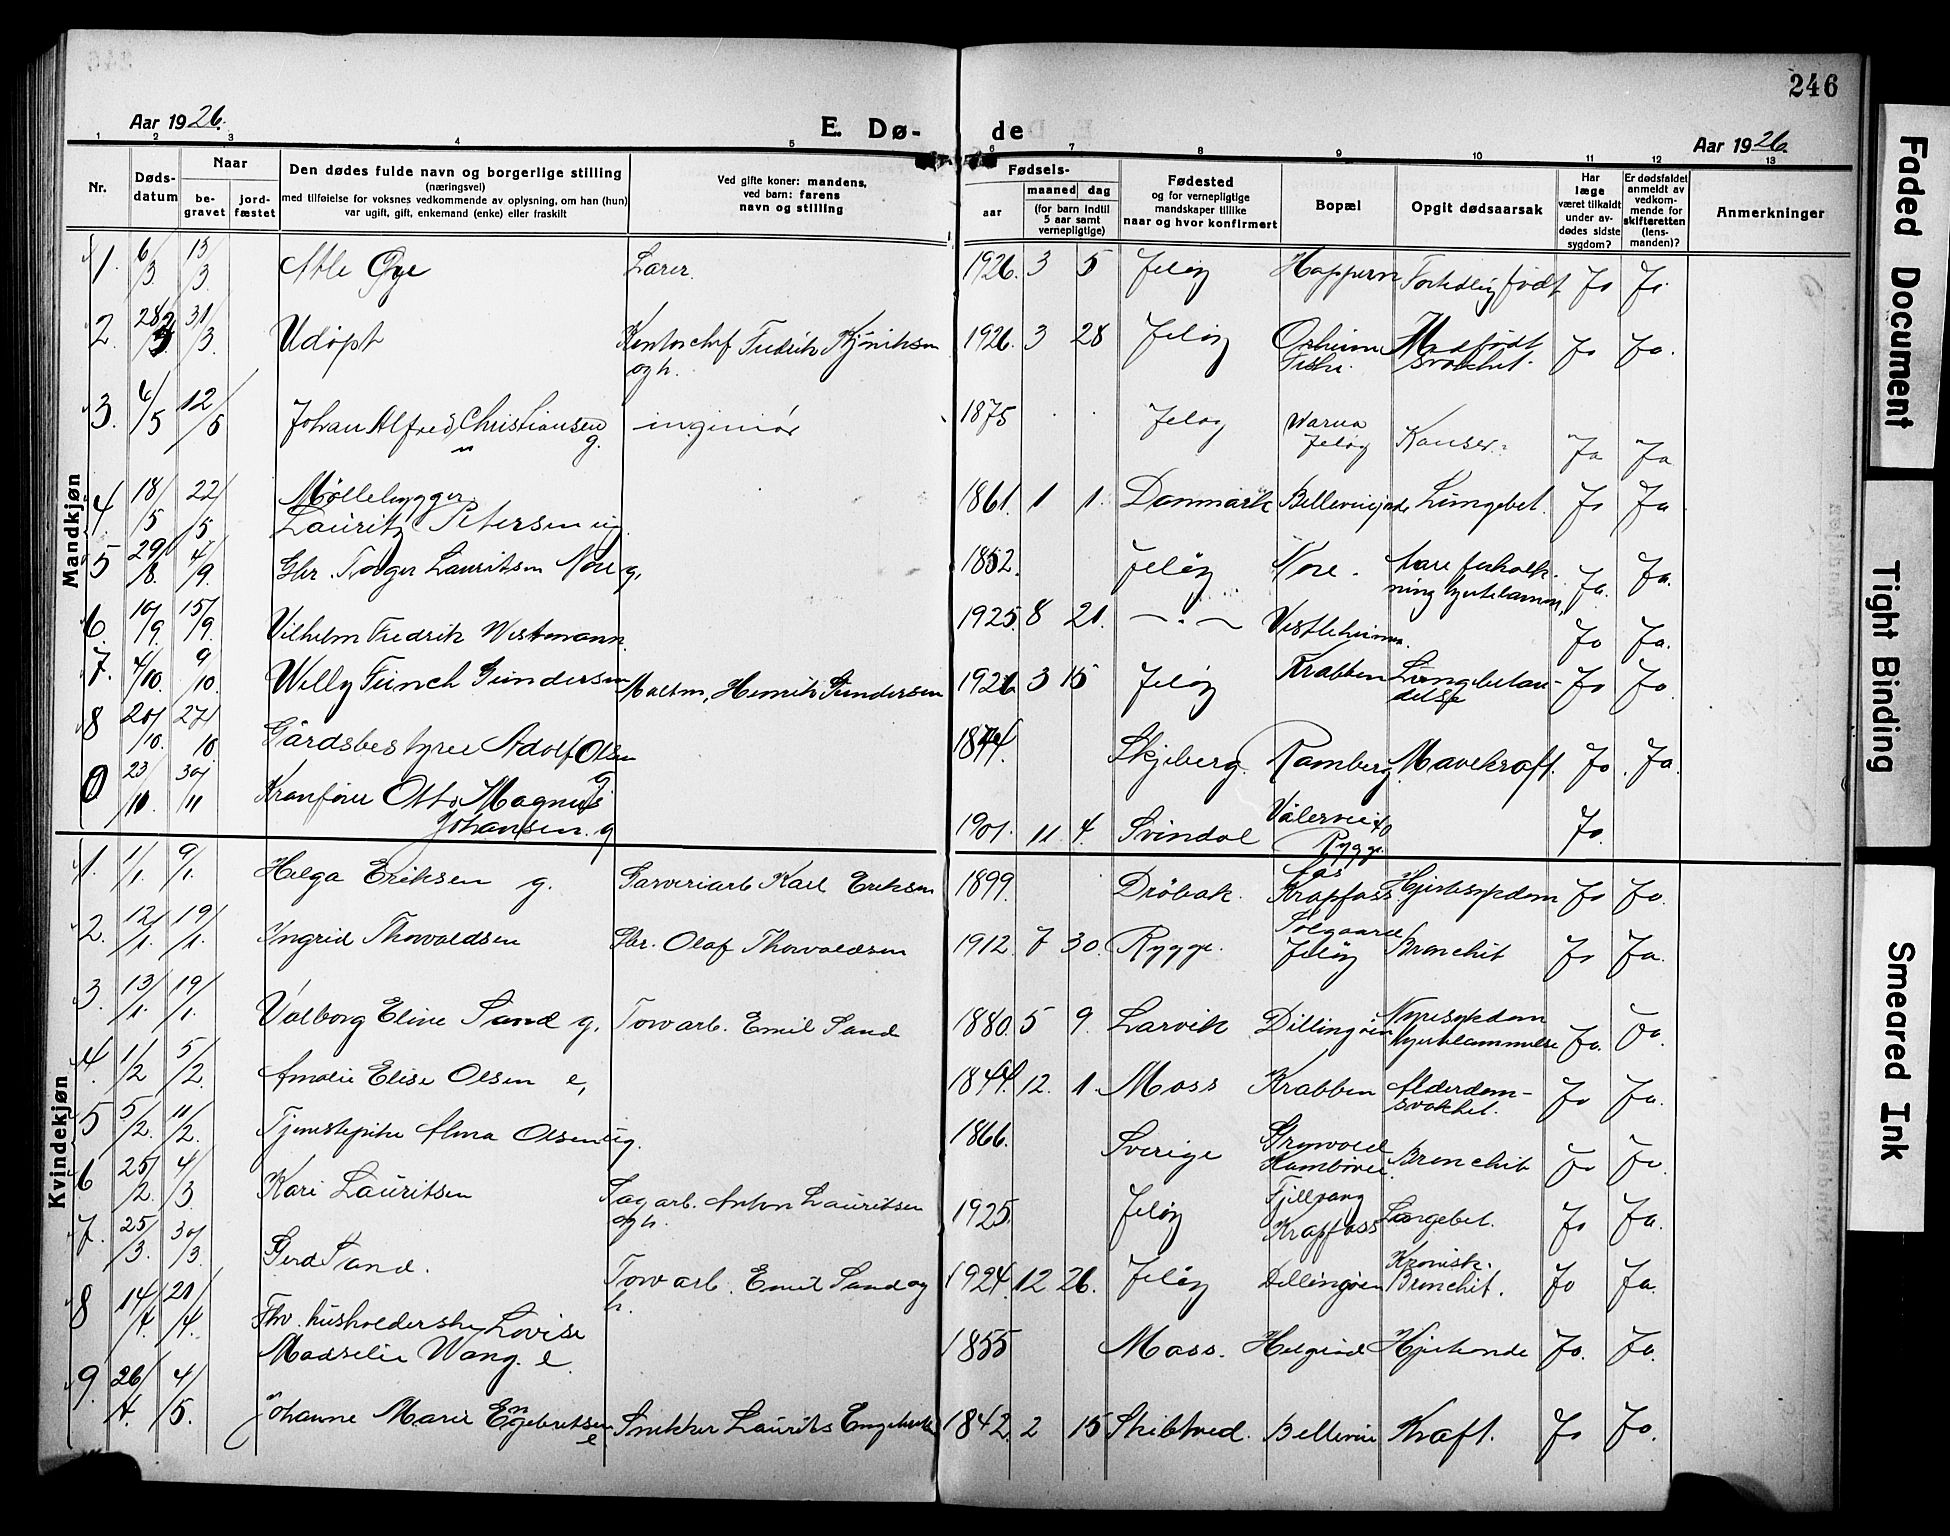 246
Aar 1926.
E. Dø-
de
Aar 1926.
1 2 3 4 5 6 7 8 9 10 11 12 13
Nr.
Døds-
datum
Naar
be-
gravet
jord-
fæstet
Den dødes fulde navn og borgerlige stilling
(næringsvei)
med tilføielse for voksnes vedkommende av oplysning, om han (hun)
var ugift, gift, enkemand (enke) eller fraskilt
Ved gifte koner: mandens,
ved barn: farens
navn og stilling
Fødsels-
aar
maaned dag
(for barn indtil
5 aar samt
vernepligtige)
Fødested
og for vernepligtige
mandskaper tillike
naar og hvor konfirmert
Bopæl
Opgit dødsaarsak
Har
læge
været tilkaldt
under av-
dødes sidste
sygdom?
Er dødsfaldet
anmeldt av
vedkom-
mende for
skifteretten
(lens-
manden)?
Anmerkninger
Mandkjøn
1. 6/3 Øye 1926. 3 5 Jeløy født Ja Ja
2. 31/3 Udøpt Kontorchef Fredrik
og h. 1926. 3 28 Jeløy Medfødt
svakhet. Ja Ja.
3. 4/5 12/5 Johan Alfred Christiansen g. ingeniør 1875 Jeløy Warna
Jeløy Kanser. Ja Ja
4 18/5 22/5 Møllebygger
Lauritz Petersen ug. 1861. 1 1. Danmark Lungebet. Ja Ja
5 29/8. 4/9. Gbr. Lauritsen Nore g. 1852. Jeløy Nore. Ja. Ja.
6. 10/9. 15/9. Vilhelm Fredrik Westmann. 1925. 8 21. — " — Vestleheimen. Ja Ja.
7. 4/10. 9/10. Willy Funch Gundersen Henrik Gundersen 1926 3 15 Jeløy Krabben Lungebetæn-
delse Ja Ja
8 20/10. 27/10. Gårdsbestyrer Adolf Olsen
g 1874. Skjeberg. Ramberg Mavekræft. Ja. Ja.
9 23/10 30/11 Kranfører Otto Magnus
Johansen. g 1901. 11 4. Svindal Vålerveien 40
Rygge. Ja.
Kvindekjøn
1. 1/1. 9/1. Helga Eriksen g. Garveriarb Karl Eriksen 1899. Drøbak. Krapfoss Hjertesykdom Ja Ja.
2. 12/1. 19/1. Ingrid Thorvaldsen Gbr. Olaf Thorvaldsen 1912. 7 30. Rygge. Solgaard
Jeløy Bronchit Ja Ja.
3. 13/1. 19/1. Valborg Eline Sand g. Towarb. Emil Sand 1880. 5 9. Larvik Dillingøen Nyresykdom
hjertelammelse Ja. Ja.
4. 1/2 5/2. Amalie Elise Olsen e, 1844. 12. 1. Moss Krabben Alderdom-
svakhet. Ja Ja.
5 5/2. 11/2. Tjenestepike Alma Olsen ug. 1866. Sverige Kambovei. Bronchit Ja Ja.
6 25/2. 4/3 Kari Lauritsen Sagarb. Anton Lauritsen
og h. 1925. Jeløy Fjellvang
Krapfoss Lungebet. Ja Ja.
7. 25/3. 30/3. Gerd Sand. Towarb. Emil Sand og
h. 1924. 12 26. Jeløy Dillingøen Kronisk.
Bronchit. Ja Ja.
8 14/4. 21/4. Fhv. husholderske Lovise
Madselie Wang. e 1855 Moss. Helgerød Ja. Ja.
9. 26/4. 4/5. Johanne Marie Engebretsen
e Snekker Laurits 1842. 2 15 Skibtved. Bellevue Kræft. Ja Ja.
Faded Document
Tight Binding
Smeared Ink